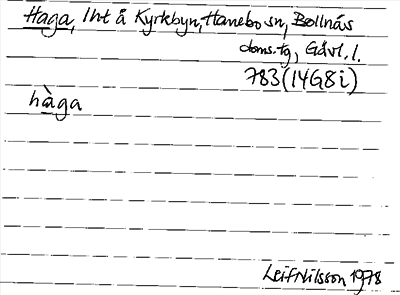 Haga, Int å Kyrkbyn, Hanebo sn, Bollnäs
doms.tg, Gävl. l.
783 (14G8i)
hàga
Leif Nilsson 1978